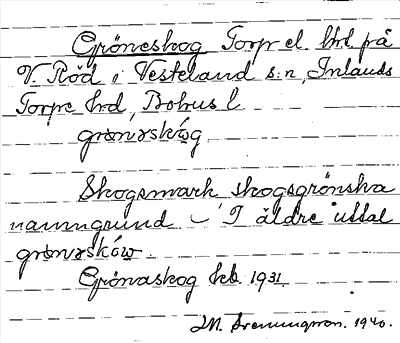 Gröneskog Torp el. hrl. på
V. Röd i Vesteland s:n, Inlands
Torpe hrd, Bohus l
grønɤskóg
Skogsmark skogsgrönska
namngrund – I äldre uttal
grønɤsków.
Grönaskog kb. 1931.
1940.